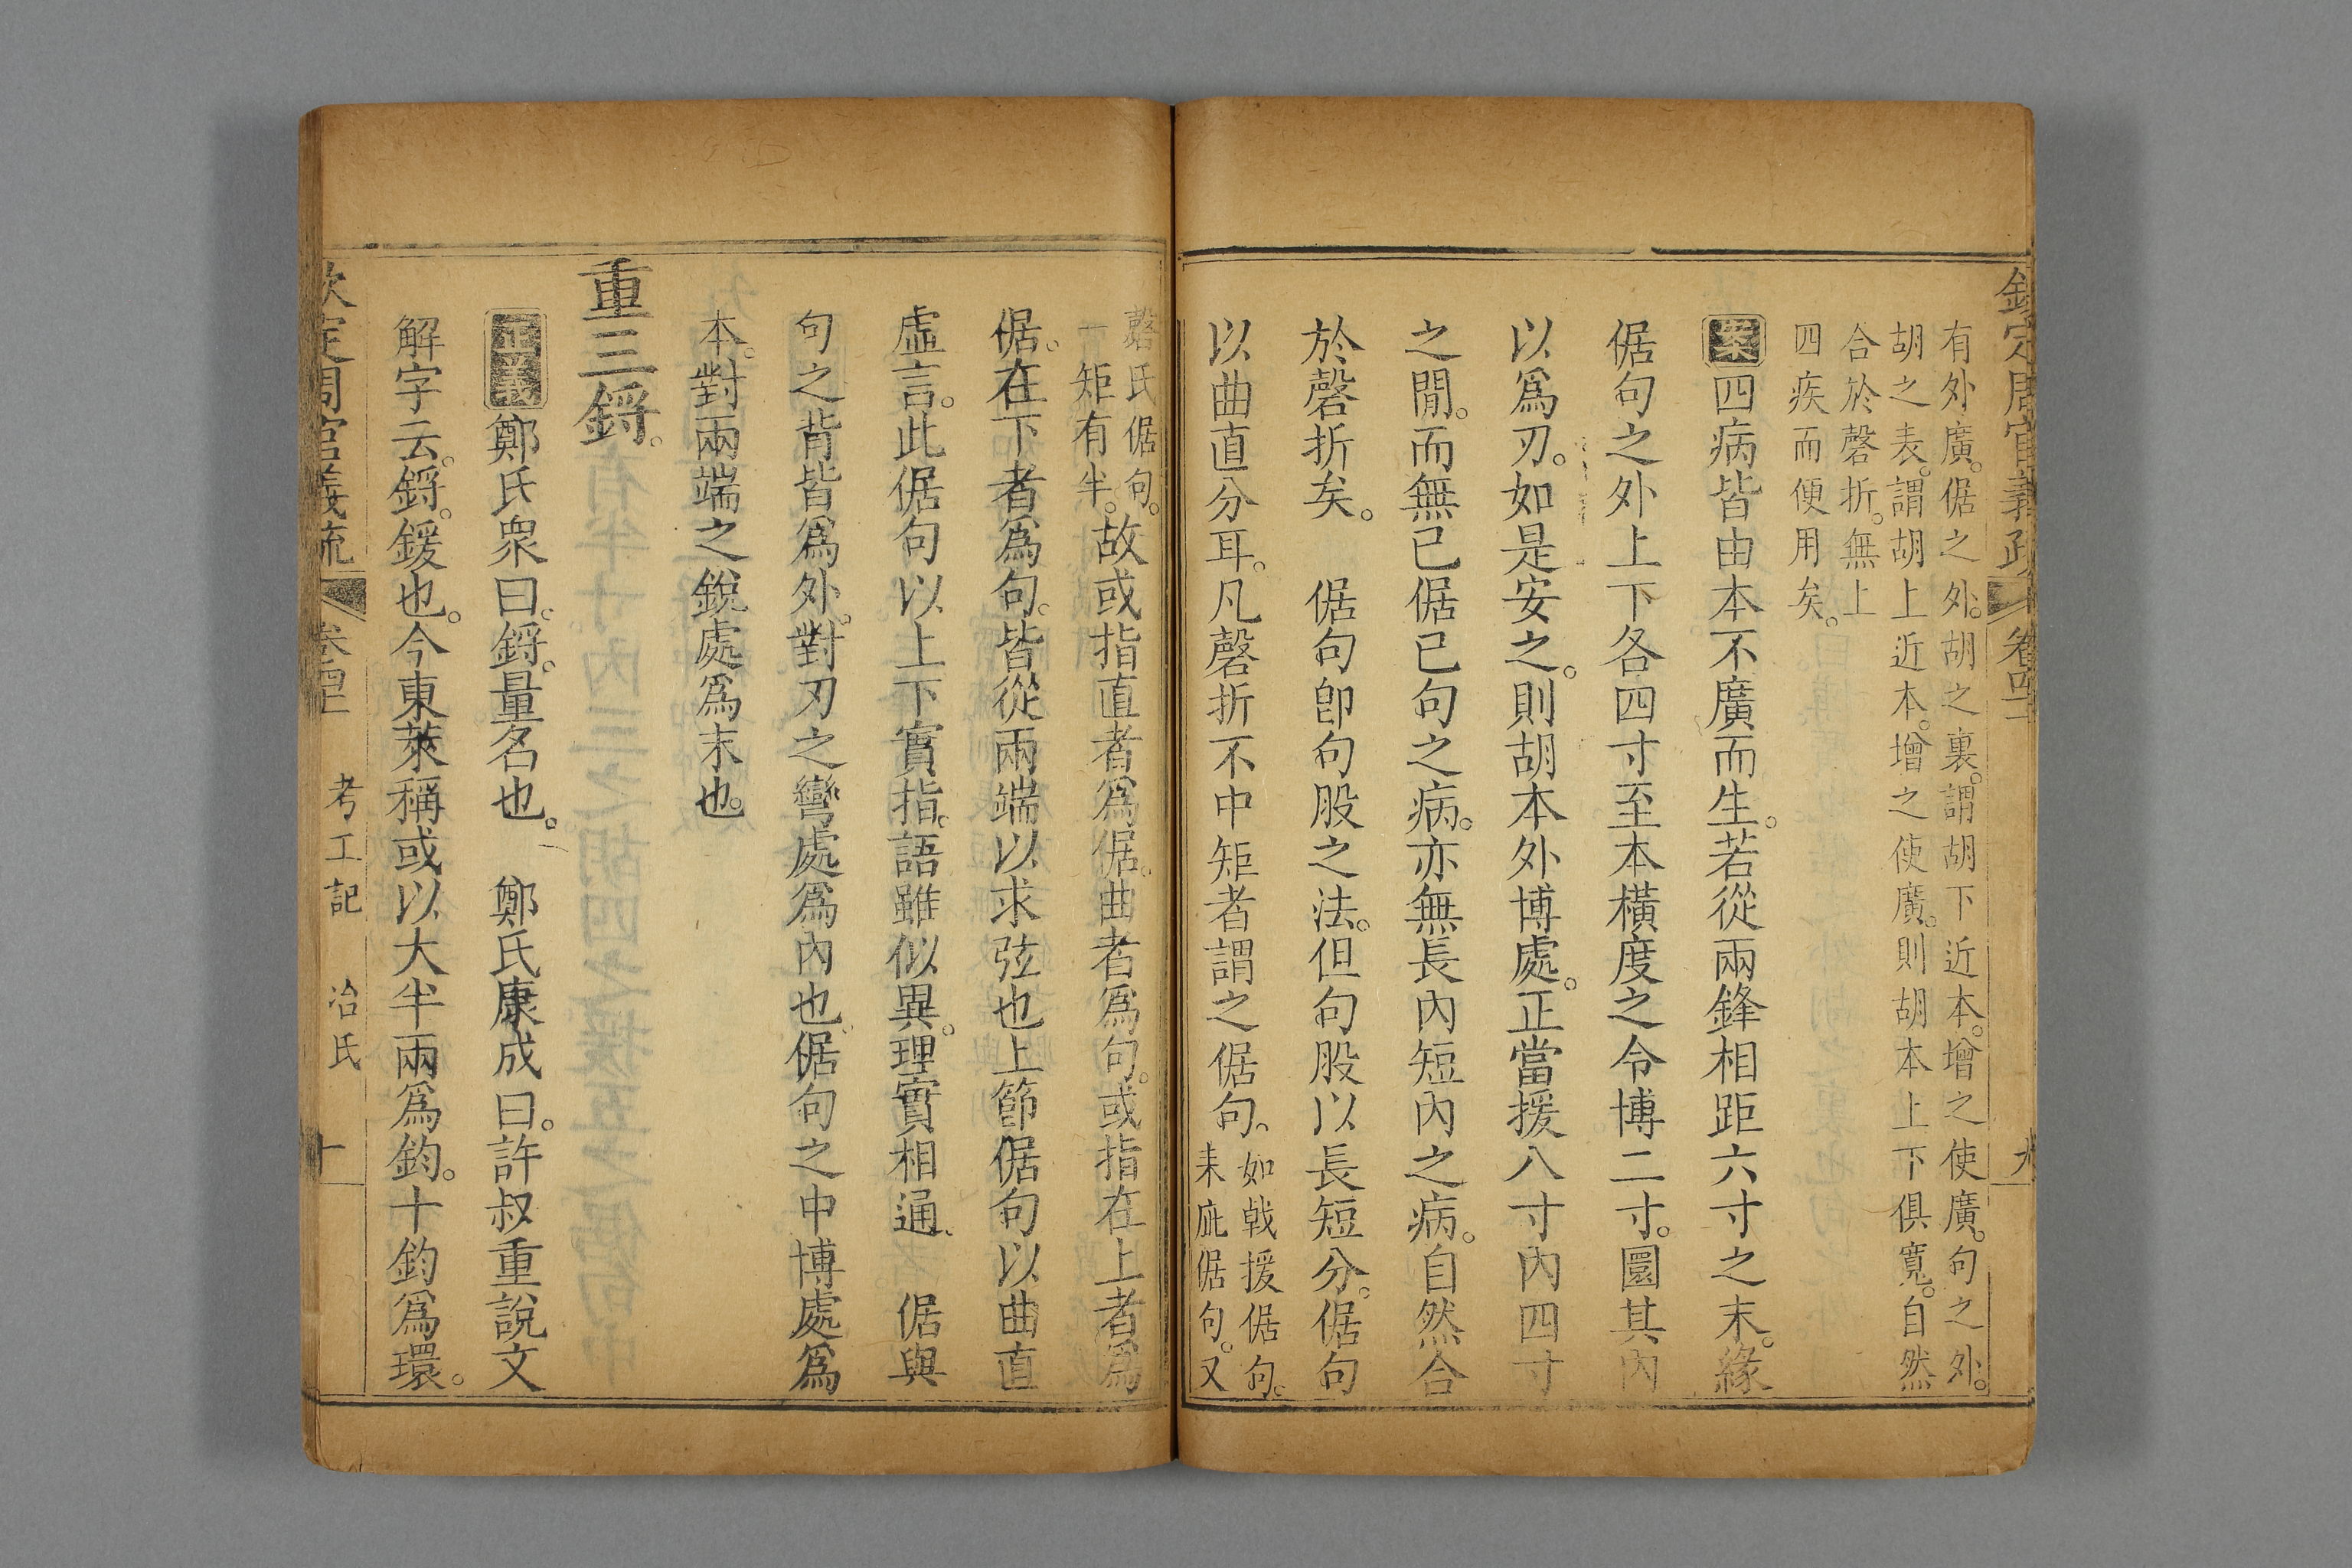 欽定周官義疏 卷四十 九
有外廣。倨之外。胡之裏。謂胡下近本。增之使廣。句之外。
胡之表。謂胡上近本。增之使廣。則胡本上下俱寬。自然
合於磬折。無上
四疾而便用矣。
案四病皆由本不廣而生。若從兩鋒相距六寸之末。緣
倨句之外上下各四寸至本橫度之令博二寸。圜其內
以爲刃。如是安之。則胡本外博處。正當援八寸內四寸
之閒。而無已倨已句之病。亦無長內短內之病。自然合
於磬折矣。 倨句卽句股之法。但句股以長短分。倨句
以曲直分耳。凡磬折不中矩者謂之倨句。
如戟援倨句。
耒庛倨句。又
磬氏倨句。
一矩有半。
故或指直者爲倨。曲者爲句。或指在上者爲
倨。在下者爲句。皆從兩端以求弦也上節倨句以曲直
虛言。此倨句以上下實指。語雖似異。理實相通。 倨與
句之背皆爲外。對刃之彎處爲內也倨句之中博處爲
本。對兩端之銳處爲末也。
重三鋝。
正義鄭氏衆曰。鋝。量名也。 鄭氏康成曰。許叔重說文
解字云。鋝。鍰也。今東萊稱或以大半兩爲鈞。十鈞爲環。
欽定周官義疏 卷四十 考工記 冶氏 十